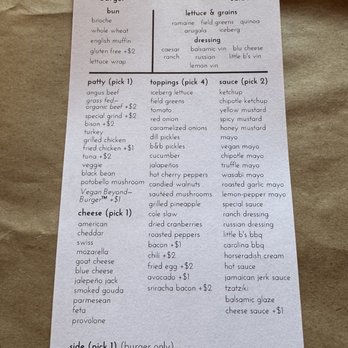 bun
brioche
whole wheat
english muffin
gluten free +$2
lettuce wrap
lettuce & grains
romaine field greens quinoa
arugula iceberg
dressing
caesar balsamic vin blu cheese
ranch russian little b's vin
lemon vin
patty (pick 1)
angus beef
grass fed–
organic beef +$2
special grind +$2
bison +$2
turkey
grilled chicken
fried chicken +$1
tuna +$2
veggie
black bean
potobello mushroom
Vegan Beyond–
Burger™ +$1
cheese (pick 1)
american
cheddar
swiss
mozarella
goat cheese
blue cheese
jalepeño jack
smoked gouda
parmesean
feta
provolone
toppings (pick 4)
iceberg lettuce
field greens
tomato
red onion
caramelized onions
dill pickles
b&b pickles
cucumber
jalapeños
hot cherry peppers
candied walnuts
sauteed mushrooms
grilled pineapple
cole slaw
dried cranberries
roasted peppers
bacon +$1
chili +$2
fried egg +$2
avocado +$1
sriracha bacon +$2
sauce (pick 2)
ketchup
chipotle ketchup
yellow mustard
spicy mustard
honey mustard
mayo
vegan mayo
chipotle mayo
truffle mayo
wasabi mayo
roasted garlic mayo
lemon-pepper mayo
special sauce
ranch dressing
russian dressing
little b's bbq
carolina bbq
horseradish cream
hot sauce
jamaican jerk sauce
tzatziki
balsamic glaze
cheese sauce +$1
side (pick 1) (burger only)